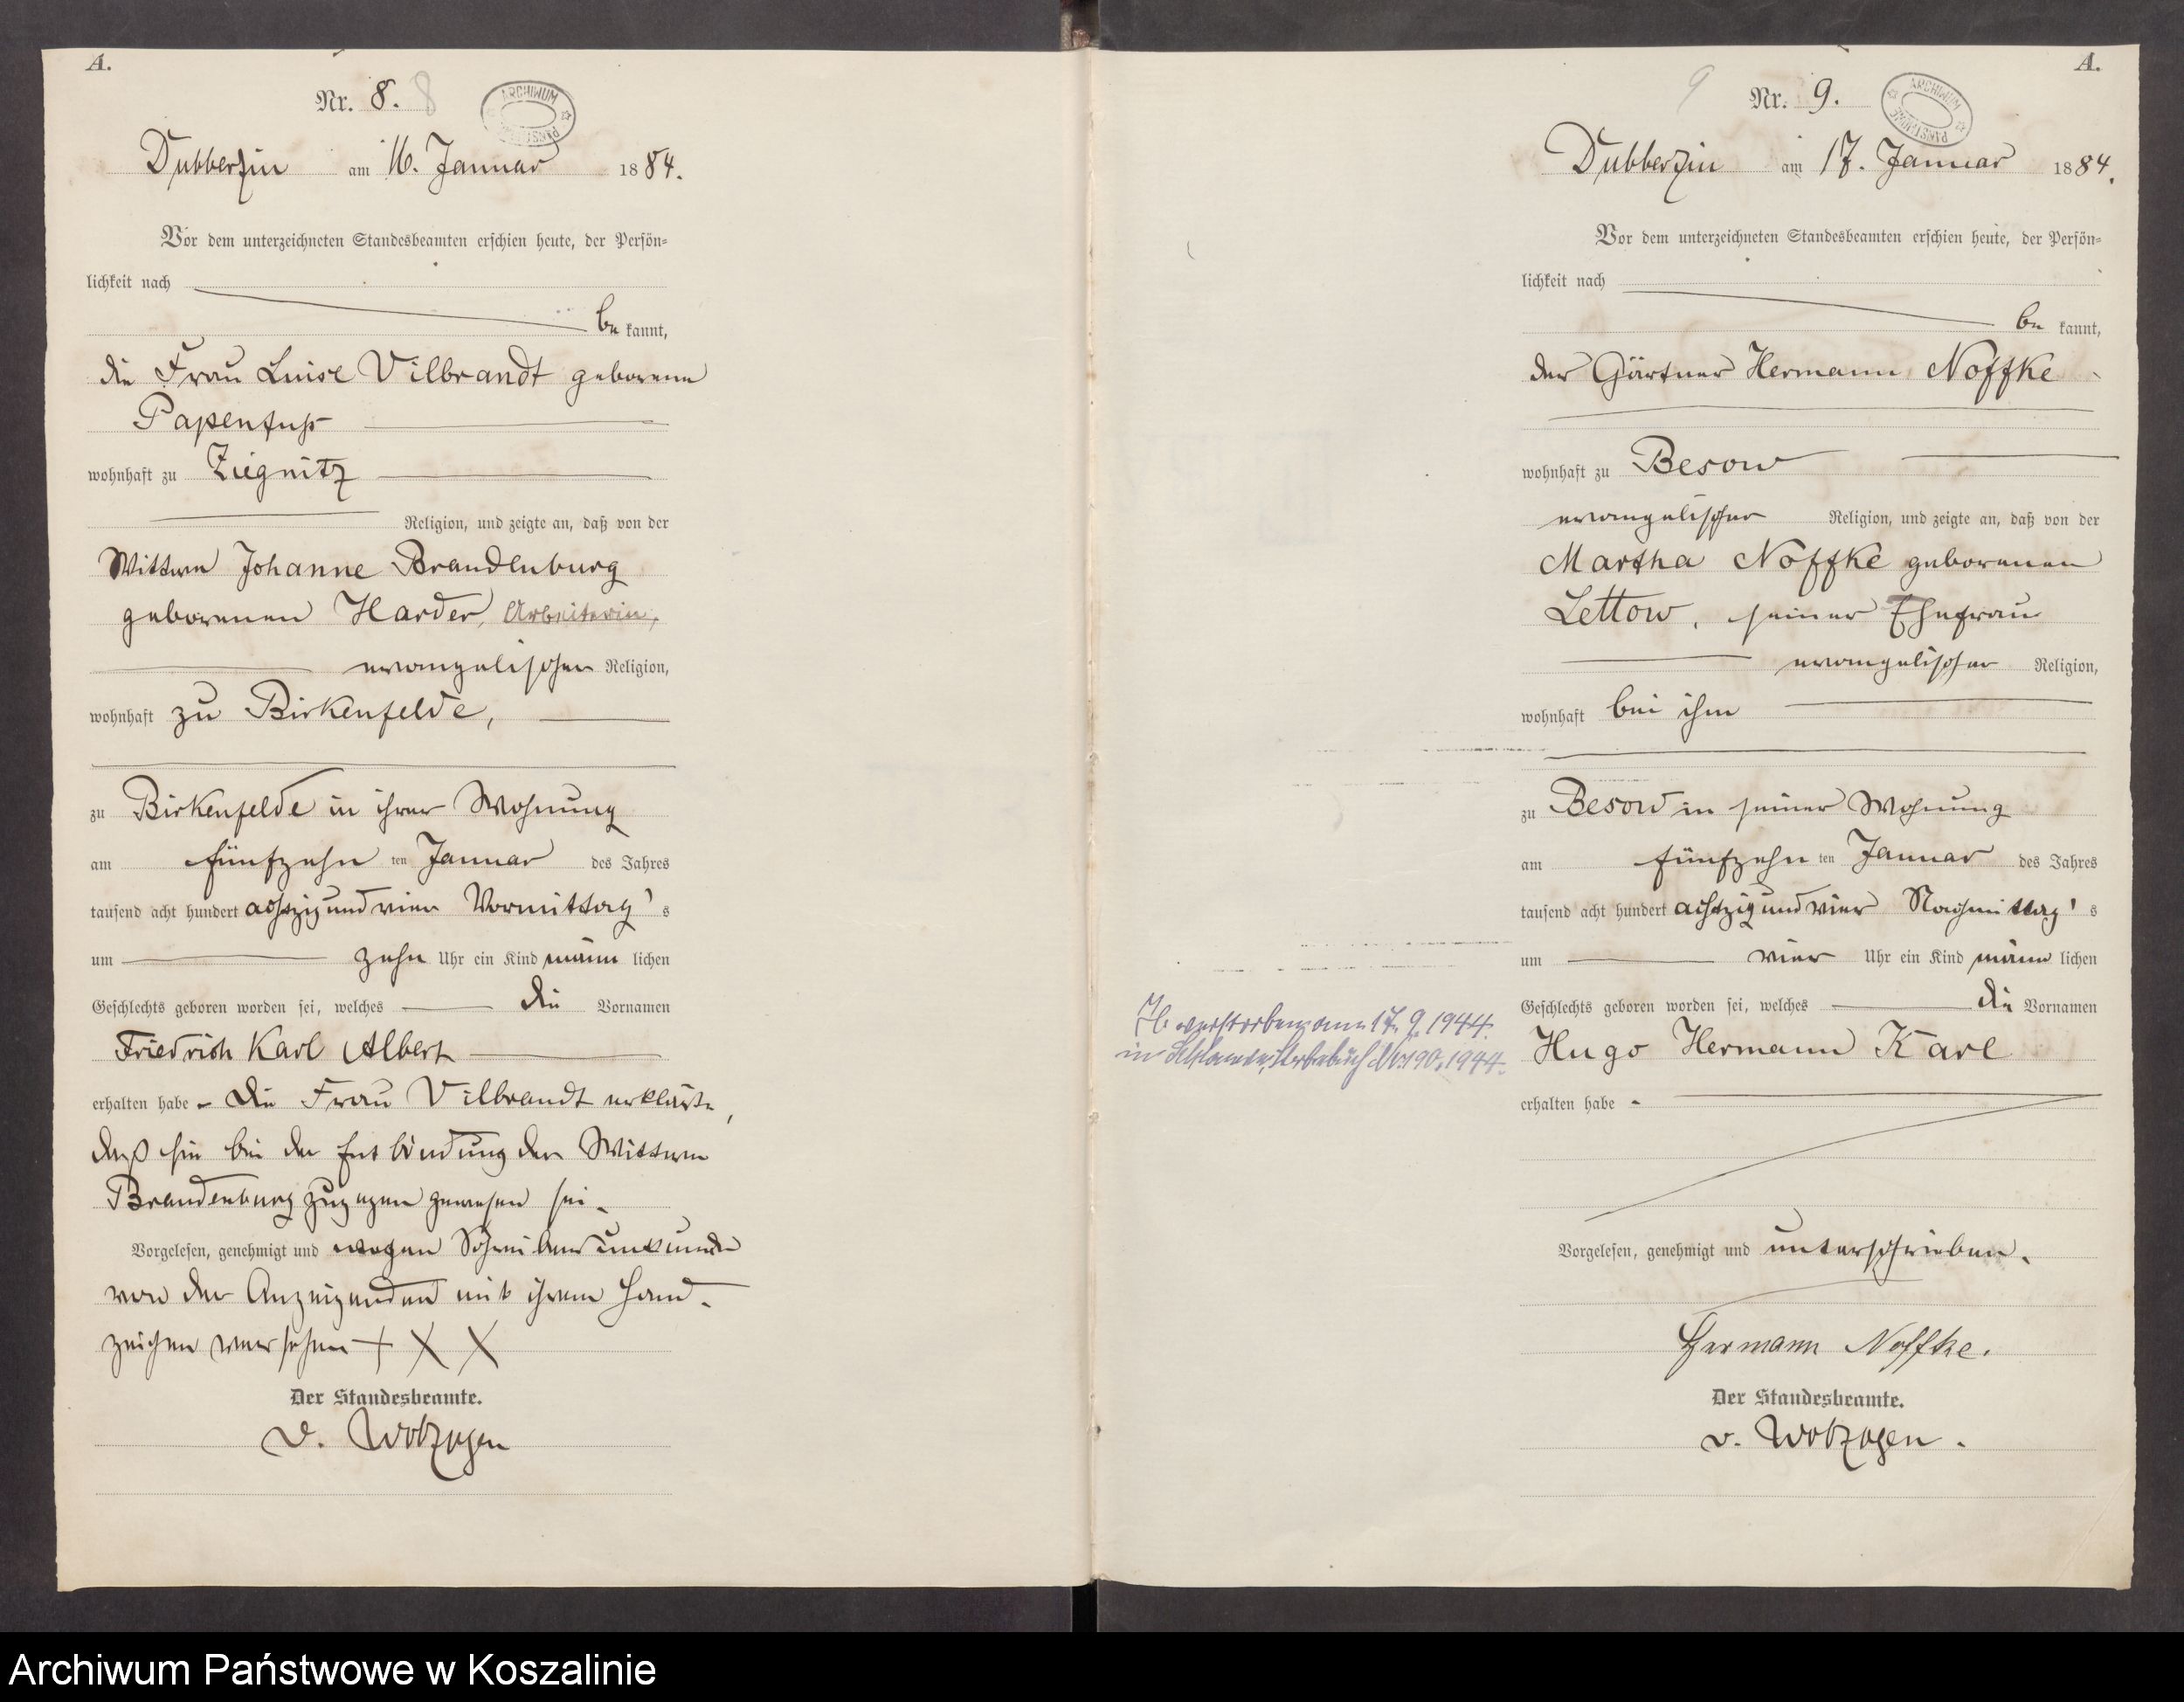 A.
Nr. 8. 8
ARCHIWUM
PAŃSTWOWE
Dubberzin am 16. Januar 1884.
Vor dem unterzeichneten Standesbeamten erschien heute, der Persön=
lichkeit nach
be kannt,
die Frau Luise Vilbrandt geborene
Papenfuß
wohnhaft zu Ziegnitz
Religion, und zeigte an, daß von der
Wittwe Johanne Brandenburg
geborenen Harder, Arbeiterin,
evangelischen Religion,
wohnhaft zu Birkenfelde,
zu Birkenfelde in ihrer Wohnung
am fünfzehn ten Januar des Jahres
tausend acht hundert achtzig und vier Vormittag's
um zehn Uhr ein Kind männ lichen
Geschlechts geboren worden sei, welches die Vornamen
Friedrich Karl Albert
erhalten habe - Die Frau Vilbrandt erklärte,
daß sie bei der Entbindung der Wittwe
Brandenburg zugegen gewesen sei.
Vorgelesen, genehmigt und wegen Schreibensunkunde
von der Anzeigenden mit ihrem Hand-
zeichen versehen + X X
Der Standesbeamte.
v. Wolzogen
A.
9 Nr. 9.
ARCHIWUM
PAŃSTWOWE
Dubberzin am 17. Januar 1884.
Vor dem unterzeichneten Standesbeamten erschien heute, der Persön=
lichkeit nach
be kannt,
der Gärtner Hermann Noffke
wohnhaft zu Besow
evangelischer Religion, und zeigte an, daß von der
Martha Noffke geborenen
Lettow, seiner Ehefrau
evangelischer Religion,
wohnhaft bei ihm
zu Besow in seiner Wohnung
am fünfzehn ten Januar des Jahres
tausend acht hundert achtzig und vier Nachmittag's
um vier Uhr ein Kind männ lichen
Geschlechts geboren worden sei, welches die Vornamen
Hugo Hermann Karl
erhalten habe -
Vorgelesen, genehmigt und unterschrieben.
Hermann Noffke.
Der Standesbeamte.
v. Wolzogen.
verstorben am 17. 9. 1944.
in Schlawe, Sterbebuch Nr. 190, 1944.
Archiwum Państwowe w Koszalinie